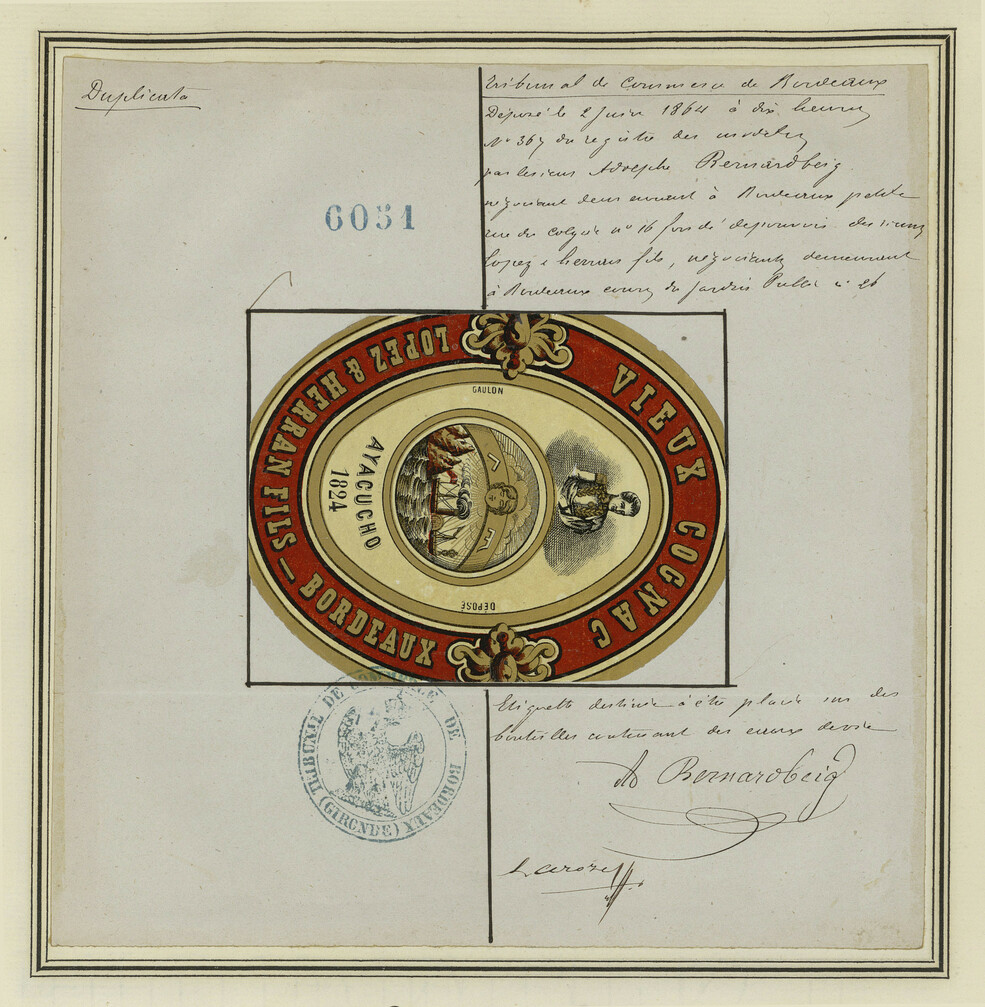 Duplicata
6051
Tribunal de Commerce de Bordeaux
Déposé le 2 Juin 1864 à dix heures
N° 367 du registre des modèles
par le sieur Adolphe Bernardbeig
négociant demeurant à Bordeaux petite
rue du Colysée n° 16 fondé de pouvoirs des sieurs
Lopez & herran fils, négociants demeurant
à Bordeaux cours du Jardin Public n° 26
VIEUX COGNAC
LOPEZ & HERRAN FILS — BORDEAUX
GAULON
AYACUCHO
1824
DÉPOSÉ
Etiquette destinée à être placée sur des
bouteilles contenant des eaux de vie
Ad Bernardbeig
TRIBUNAL DE COMMERCE DE BORDEAUX
(GIRONDE)